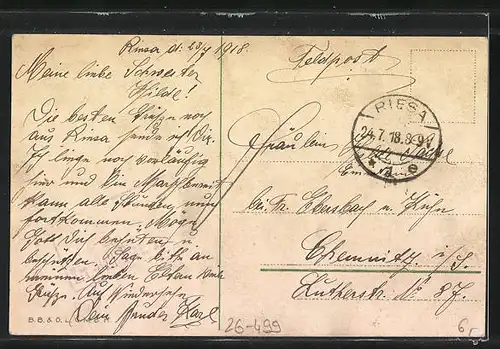 Riesa d. 23/7 1918.
Meine liebe Schwester
Hilde!
Die besten Grüße noch
aus Riesa sende ich Dir.
Ich liege noch vorläufig
hier und bin Marschbereit
kann alle Stunden
fortkommen. Möge
Gott Dich behüten u
beschützen. Sage bitte an
lieben Eltern
Grüße. Auf Wiedersehen
Dein Bruder Karl
B. B. & O. L.
Feldpost
RIESA
24.7.18.8-9V
Fräulein
bei Fr. Ebersbach u. Kühn
Chemnitz i/S.
Lutherstr. No 87.
26-499